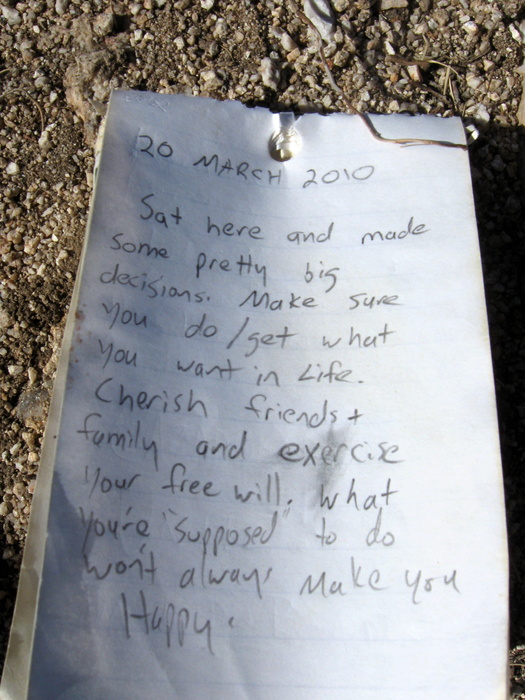 20 MARCH 2010
Sat here and made
some pretty big
decisions. Make sure
you do/get what
you want in Life.
Cherish friends +
family and exercise
your free will. What
you're "supposed" to do
won't always make you
Happy.